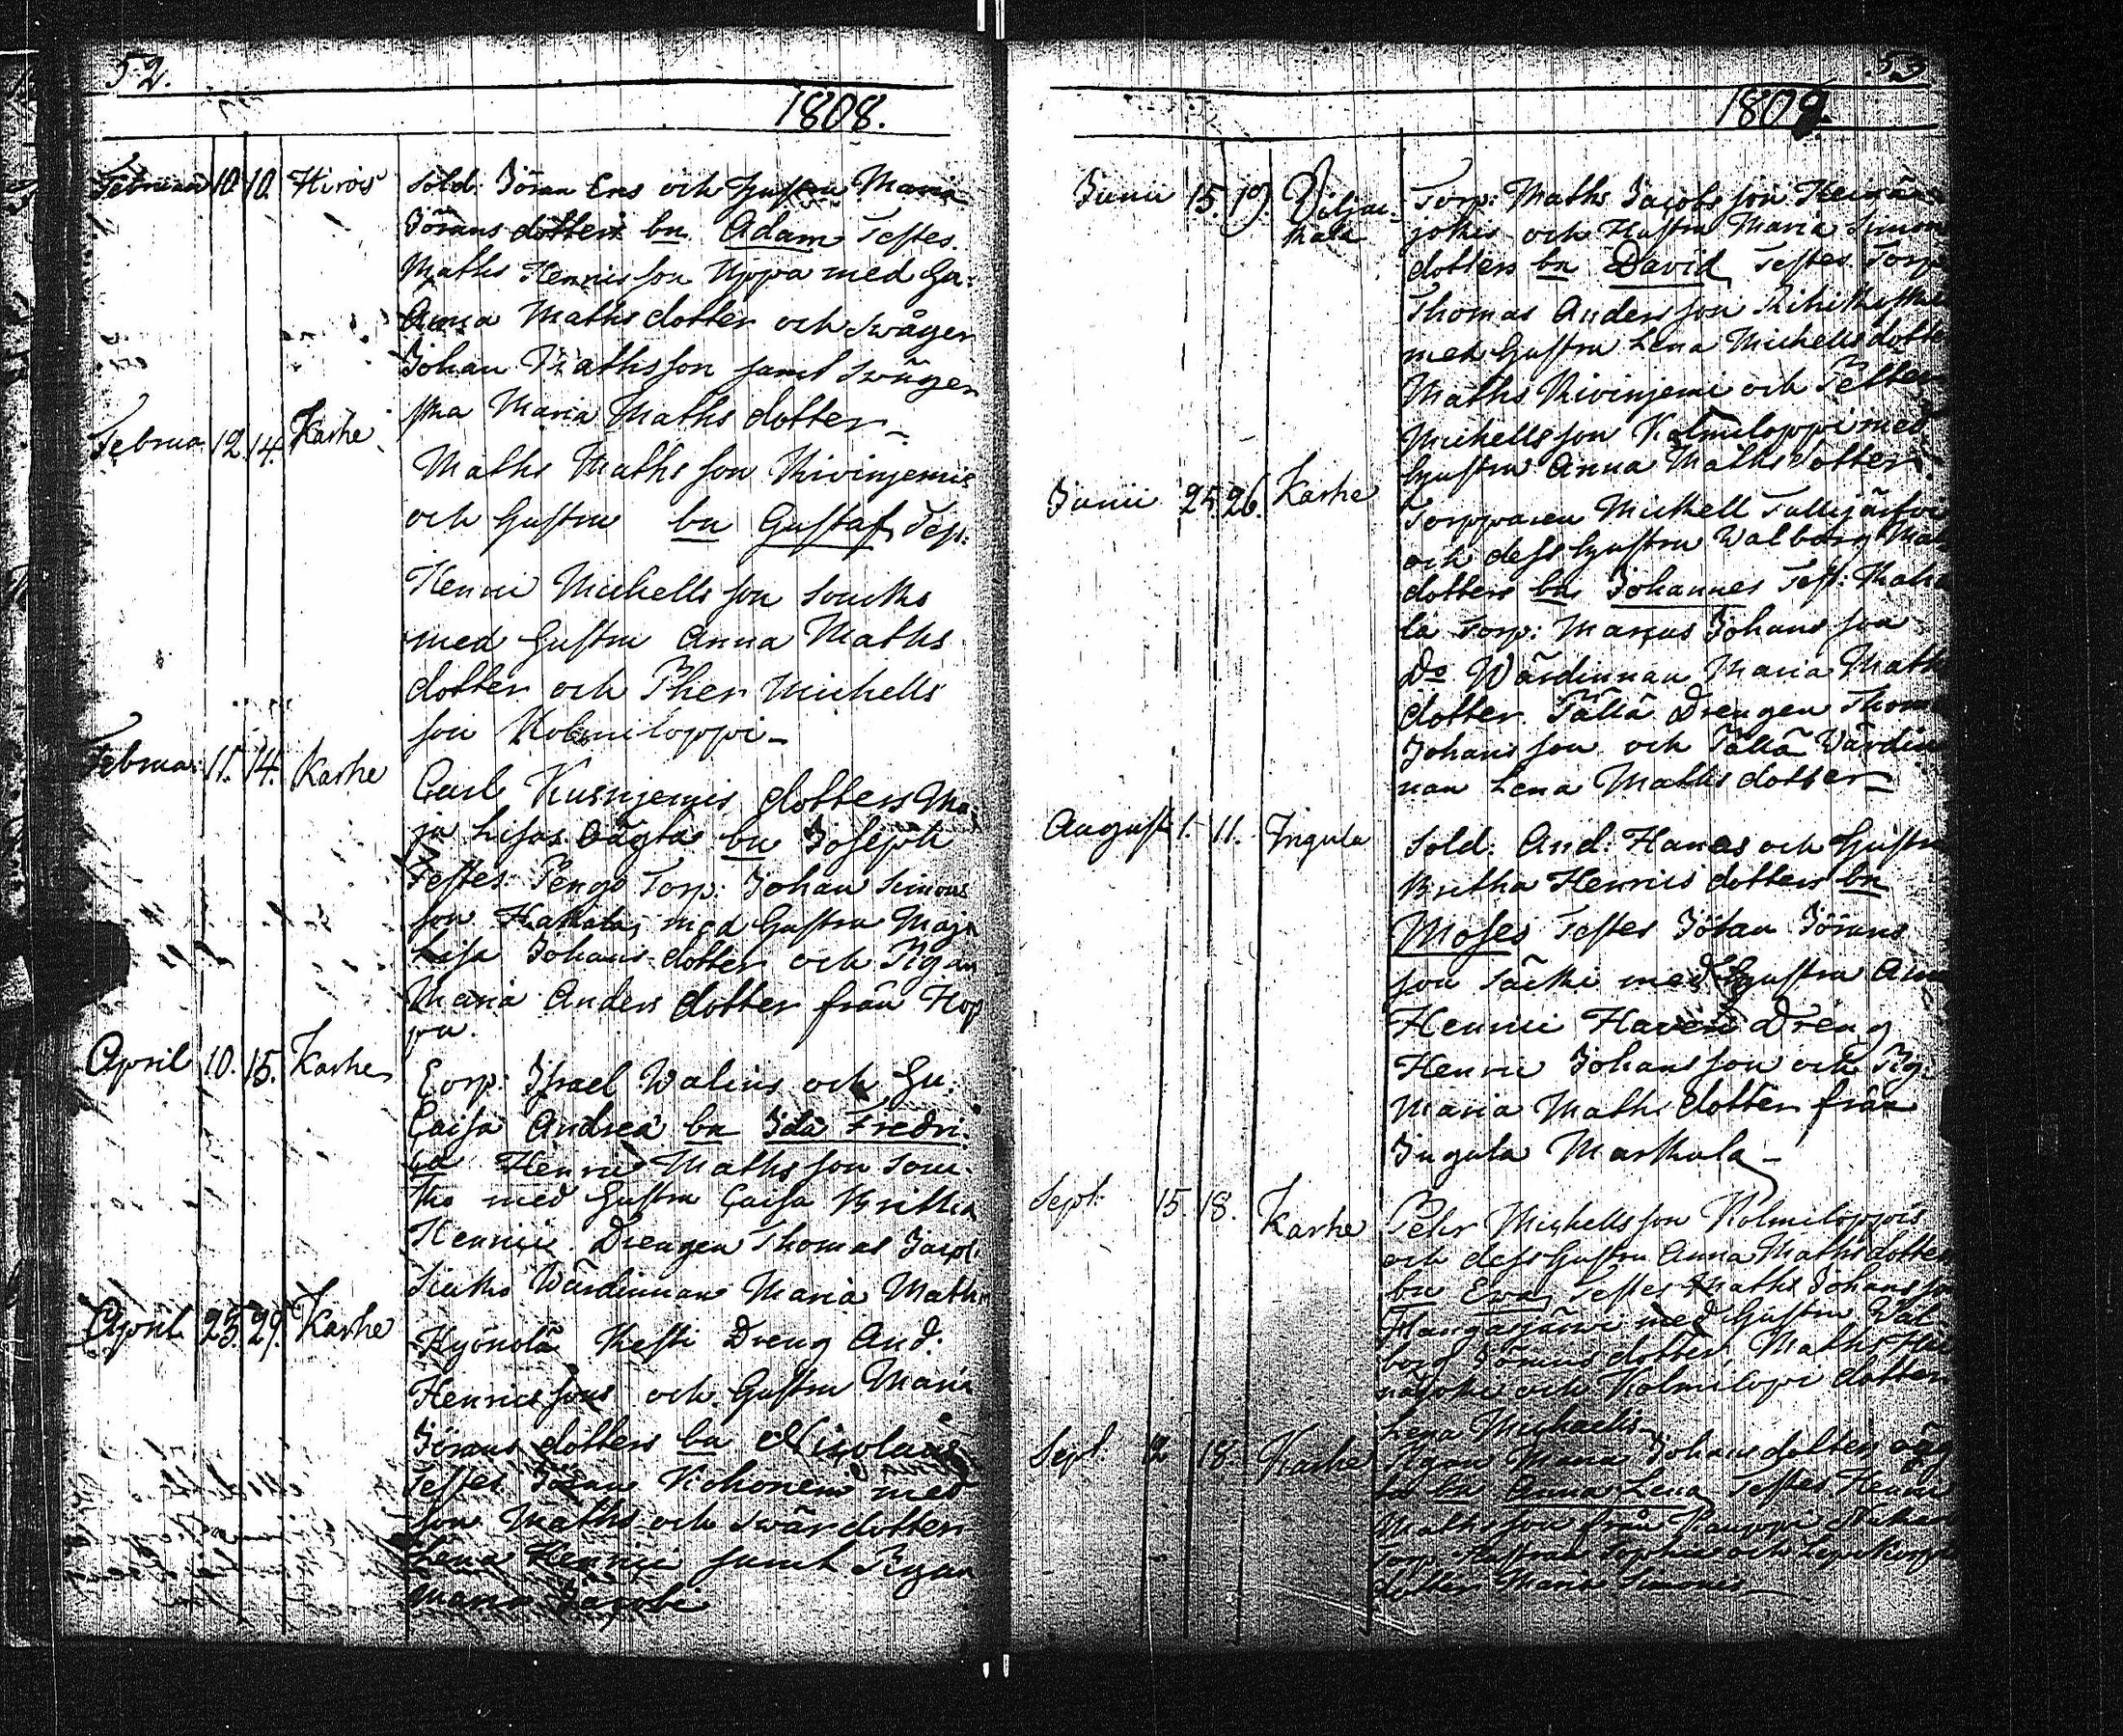 52.
1808.
Februari 10. 10. Hirvis Sold: Jöran Ers och Hustru Maria
Jörans dotters bn Adam Testes.
Maths Henricsson Uppa med Hu:
Anna Maths dotter och Swåger
Johan Mathsson samt Swäger
Maria Maths dotter
Februa 12 14. Karhe Maths Mathsson Kivinjemis
och Hustru bn Gustaf, Test:
Henric Michellsson
med Hustru Anna Maths
dotter och Pher Michells
son Kolmiloppi
Februa: 11. 14. Karhe Carl dotters Ma
ja Lisas oägta bn Joseph
Testes Pengo Torp: Johan Simons
son med Hustru Maja
Lisa Johans dotter och Pigan
Maria Anders dotter från Hop
pa.
April 10. 15. Karhe Corp: Israel Walins och Hu:
Caisa Andreæ bn Ida Fredri:
ca Henric Mathsson Sou
ko med Hustru Caisa Britha
Henrici Drengen Thomas Jacobs
Wärdinnan Maria Maths
April 23. 29. Karhe Kyönolä Kesti Dreng And:
Henricssons och Hustru Maria
Jörans dotters bn Nicolaus
Testes Jöran Kohonen med
son Maths och Swärdotter
Lena Henrici samt Pigan
Maria Jacobi
53
1809.
Junii 15. 19. Viljak: Torp: Maths Jacobsson
kala jokis och Hustru Maria Simons
dotters bn David, Testes Torp
Thomas Andersson
med Hustru Lena Michells dotter
Maths Kivinjemi och Petter
Michellsson Kolmiloppi med
Hustru Anna Maths dotter
Junii 25. 26. Karhe Torpparen Michell
och dess Hustru Walborg Maths
dotters bn Johannes Test:
la Torp: Marcus Johansson
Do Wärdinnan Maria Maths
dotter Tällä Drengen Thom
Johansson och Tällä Wärdin
nan Lena Maths dotter
August 1. 11. Ingula Sold: And: Hanes och Hustru
Britha Henrics dotters bn
Moses Testes Jöran Jörans
son med Hustru Anna
Henrici Dreng
Henric Johansson och Pig:
Maria Maths dotter från
Ingula Markula
Sept: 15. 18. Karhe Pehr Michellsson Kolmiloppis
och dess Hustru Anna Maths dotter
bn Eva, Testes Maths Johansson
Hangasjärwi med Hustru Wal
borg Jörans dotter, Maths
och Kolmilopi dotter
Lena Michaelis
Sept: 2 18. Karhe Pigan Maria Johans dotters oäg
ta bn Anna Lena, Testes Henric
Mathsson från
Torp: och
dotter Maria Simonis